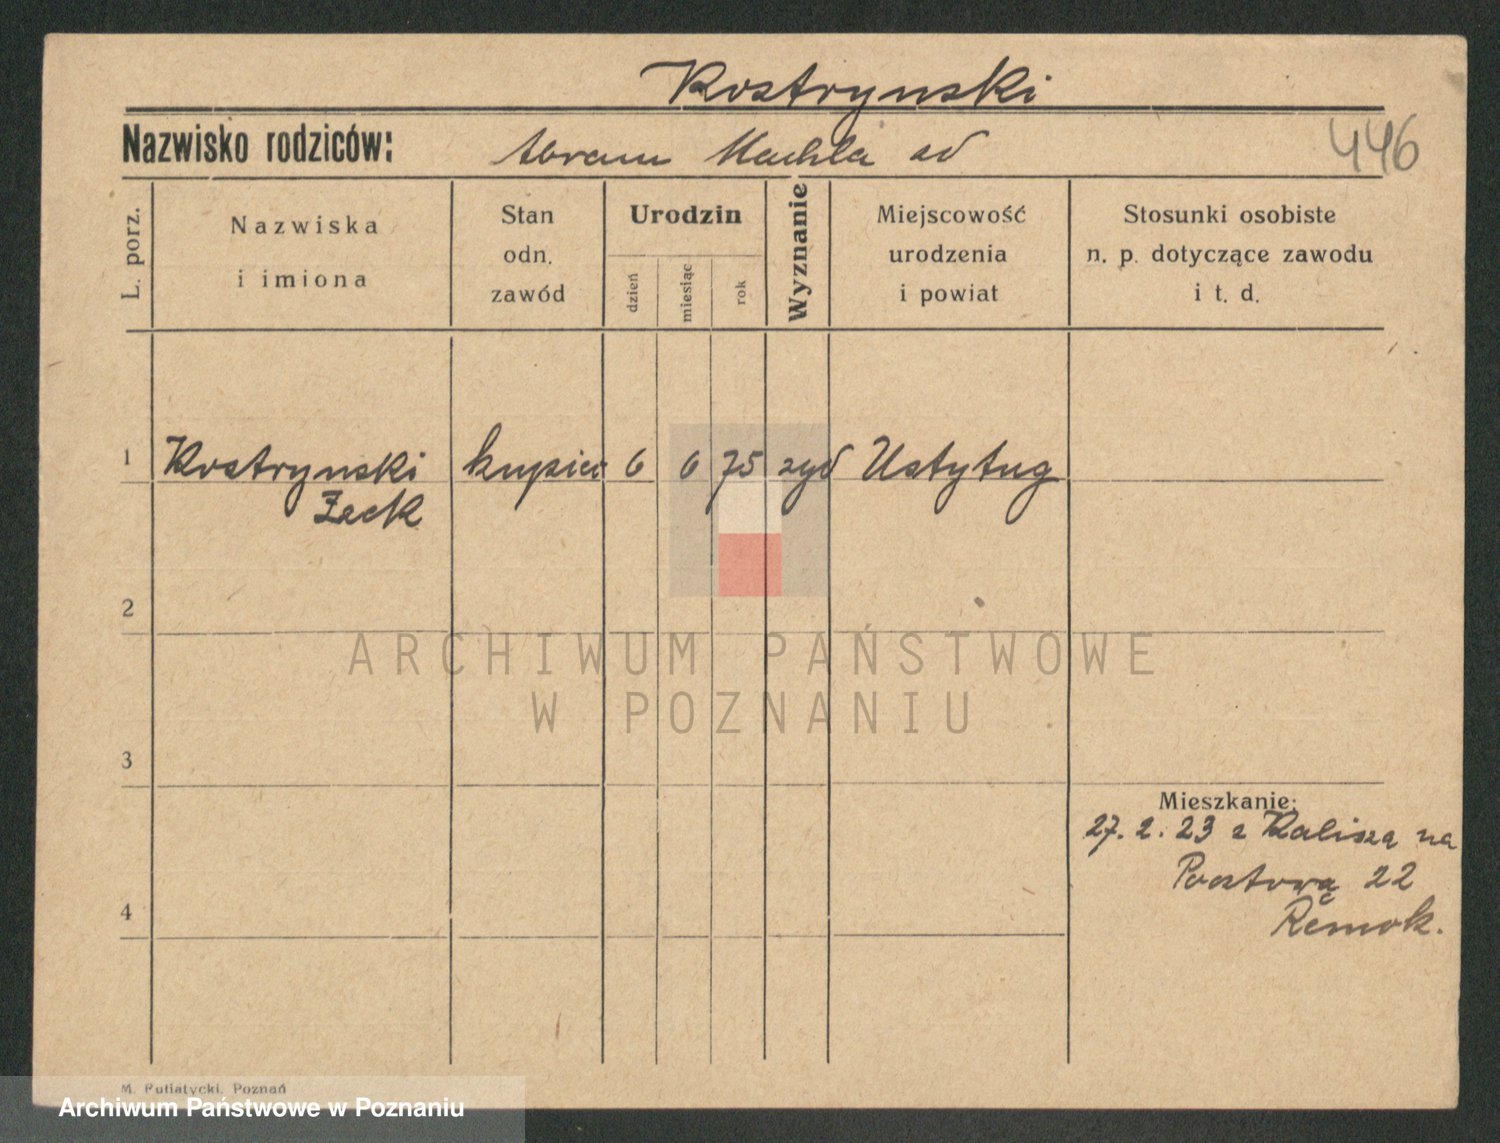 Kostrynski
Nazwisko rodziców:
Abram Machla
446
L. porz.
Nazwiska
i imiona
Stan
odn.
zawód
Urodzin
dzień
miesiąc
rok
Wyznanie
Miejscowość
urodzenia
i powiat
Stosunki osobiste
n. p. dotyczące zawodu
i t. d.
1 Kostrynski kupiec 6 6 75 żyd Ustyług
2
ARCHIWUM PAŃSTWOWE
W POZNANIU
3
Mieszkanie:
27. 2. 23 z Kalisza na
Pocztową 22
4
M. Putiatycki, Poznań
Archiwum Państwowe w Poznaniu